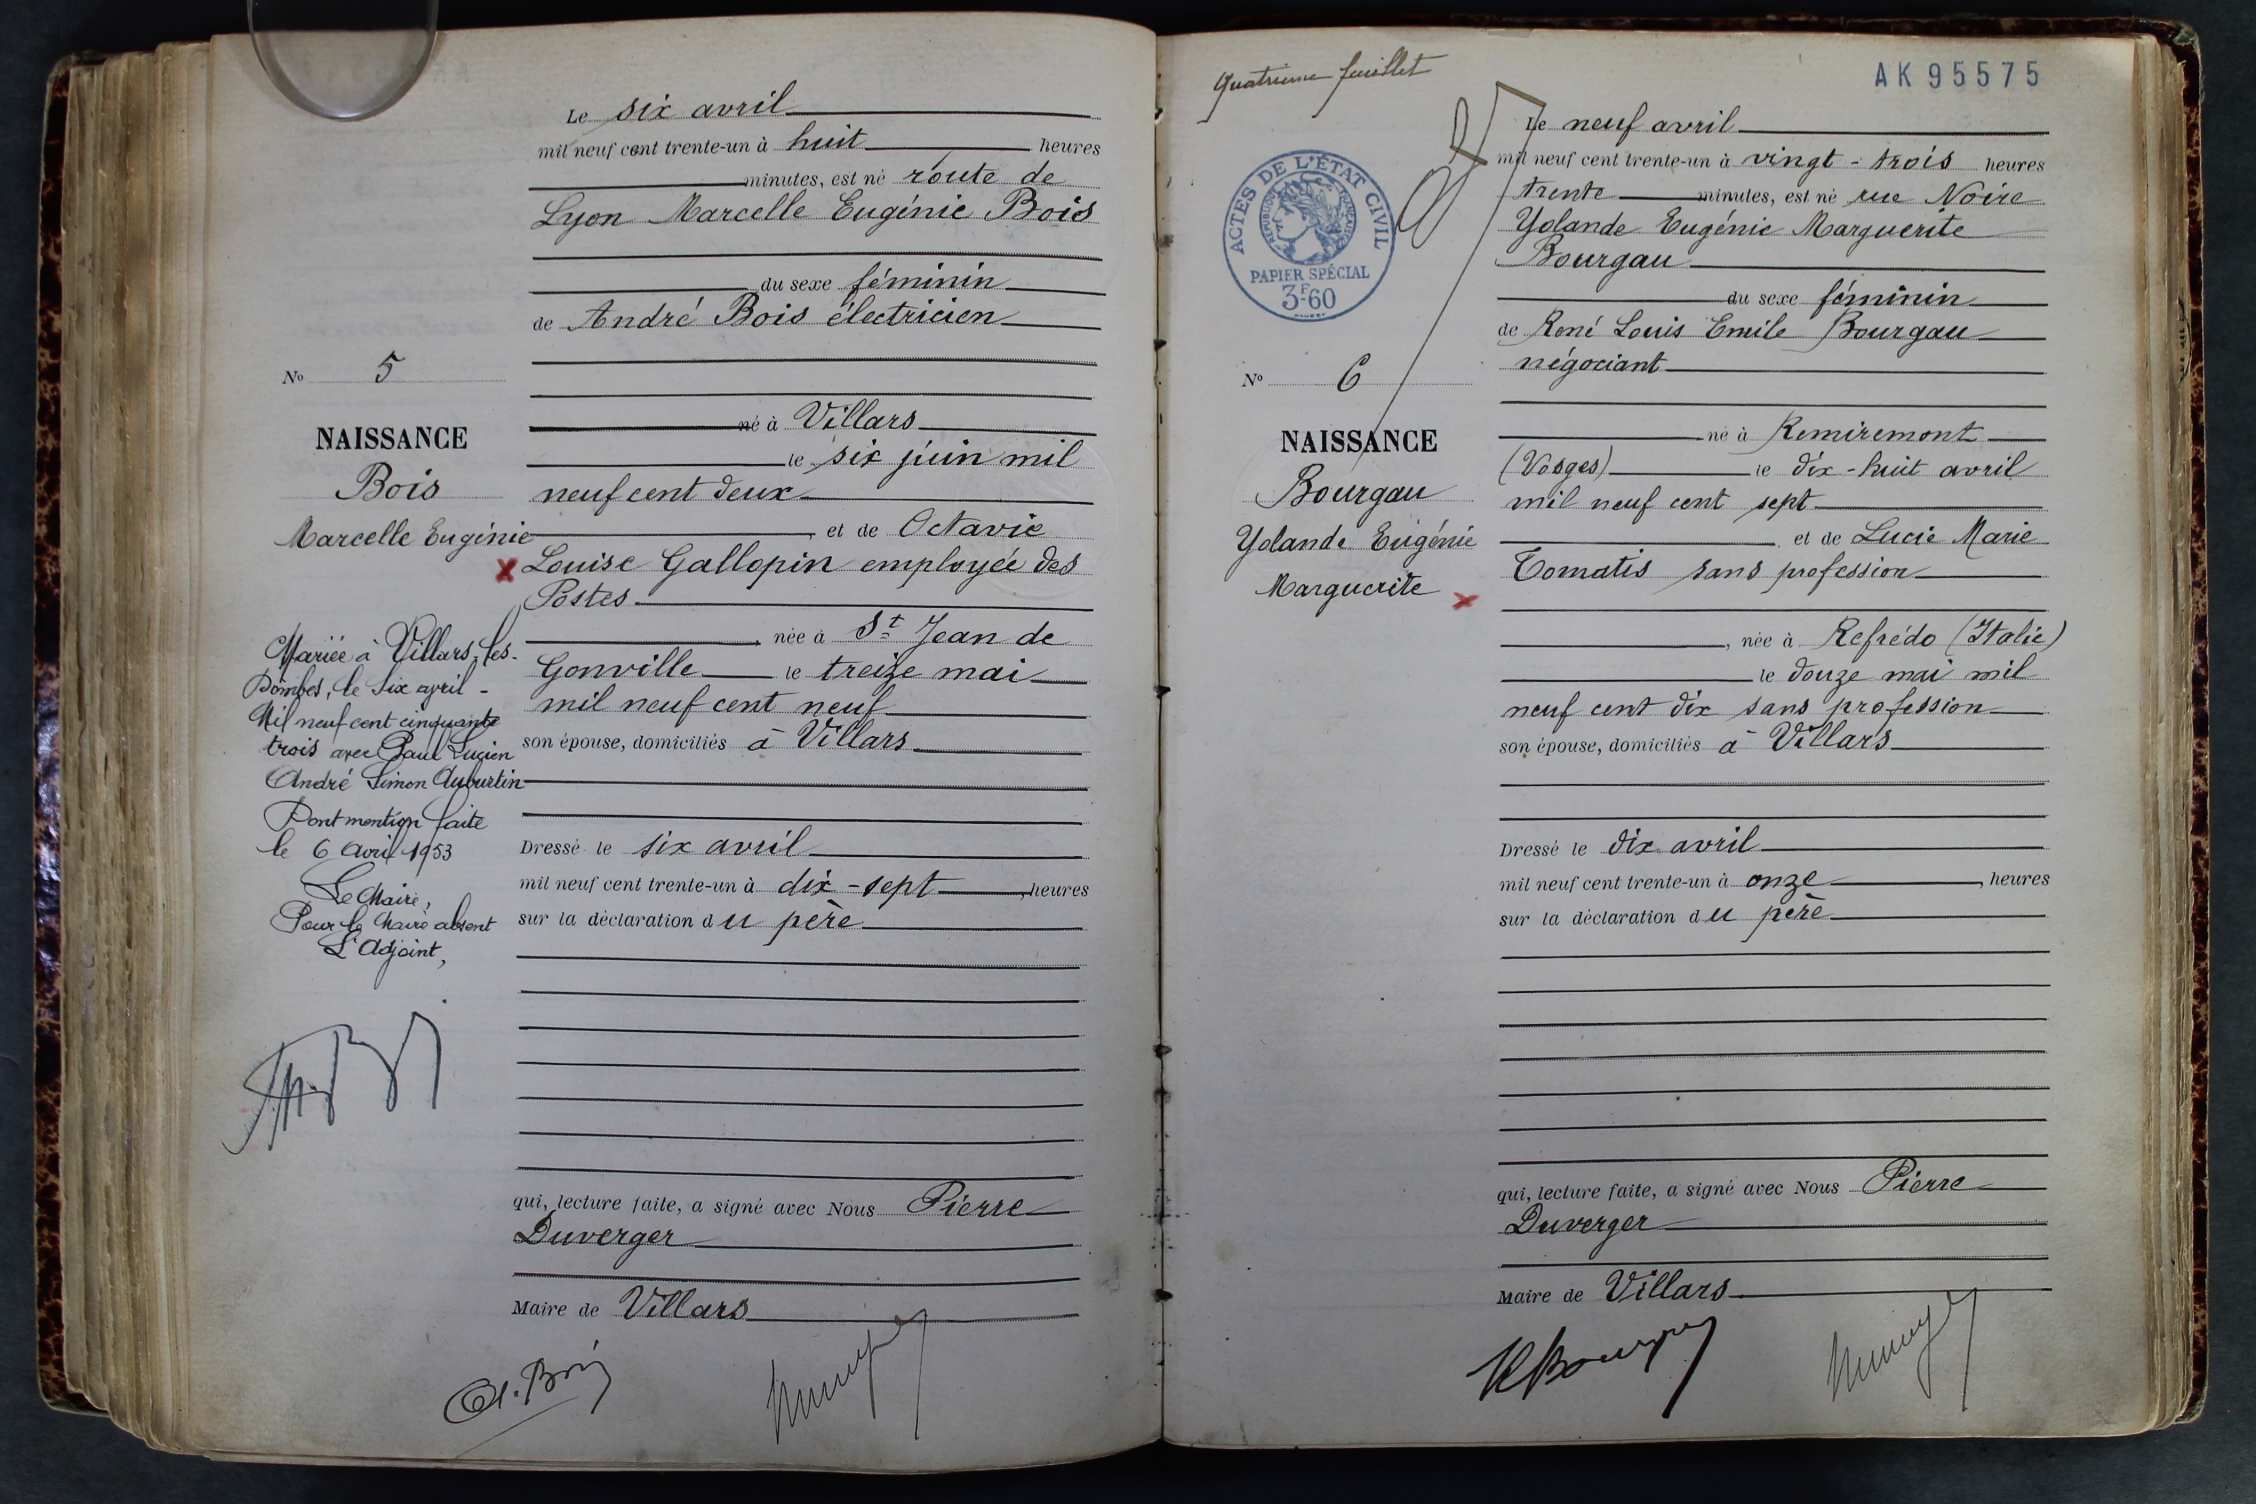 Le six avril
mil neuf cent trente-un à huit heures
minutes, est né route de
Lyon Marcelle Eugénie Bois
du sexe féminin
de André Bois électricien
N° 5
né à Villars
NAISSANCE
le six juin mil
Bois
neuf cent deux
Marcelle Eugénie
et de Octavie
Louise Gallopin employée des
Postes
née à St Jean de
Gonville le treize mai
mil neuf cent neuf
son épouse, domiciliés à Villars
Mariée à Villars-les-
Dombes, le six avril -
Mil neuf cent cinquante
trois avec Paul Lucien
André Simon Auburtin
Dont mention faite
le 6 avril 1953
Le Maire,
Pour le Maire absent
L'Adjoint,
Dressé le six avril
mil neuf cent trente-un à dix-sept, heures
sur la déclaration du père
qui, lecture faite, a signé avec Nous Pierre
Duverger
Maire de Villars
A. Bois
Quatrième feuillet
AK 95575
ACTES DE L'ÉTAT CIVIL
RÉPUBLIQUE FRANÇAISE
PAPIER SPÉCIAL
3F60
Le neuf avril
mil neuf cent trente-un à vingt-trois heures
trente minutes, est né rue Noire
Yolande Eugénie Marguerite
Bourgau
du sexe féminin
de René Louis Emile Bourgau
négociant
N° 6
né à Remiremont
NAISSANCE
(Vosges) le dix-huit avril
Bourgau
mil neuf cent sept
Yolande Eugénie
Marguerite
et de Lucie Marie
Tomatis sans profession
, née à Refrédo (Italie)
le douze mai mil
neuf cent dix sans profession
son épouse, domiciliés à Villars
Dressé le dix avril
mil neuf cent trente-un à onze, heures
sur la déclaration du père
qui, lecture faite, a signé avec Nous Pierre
Duverger
Maire de Villars